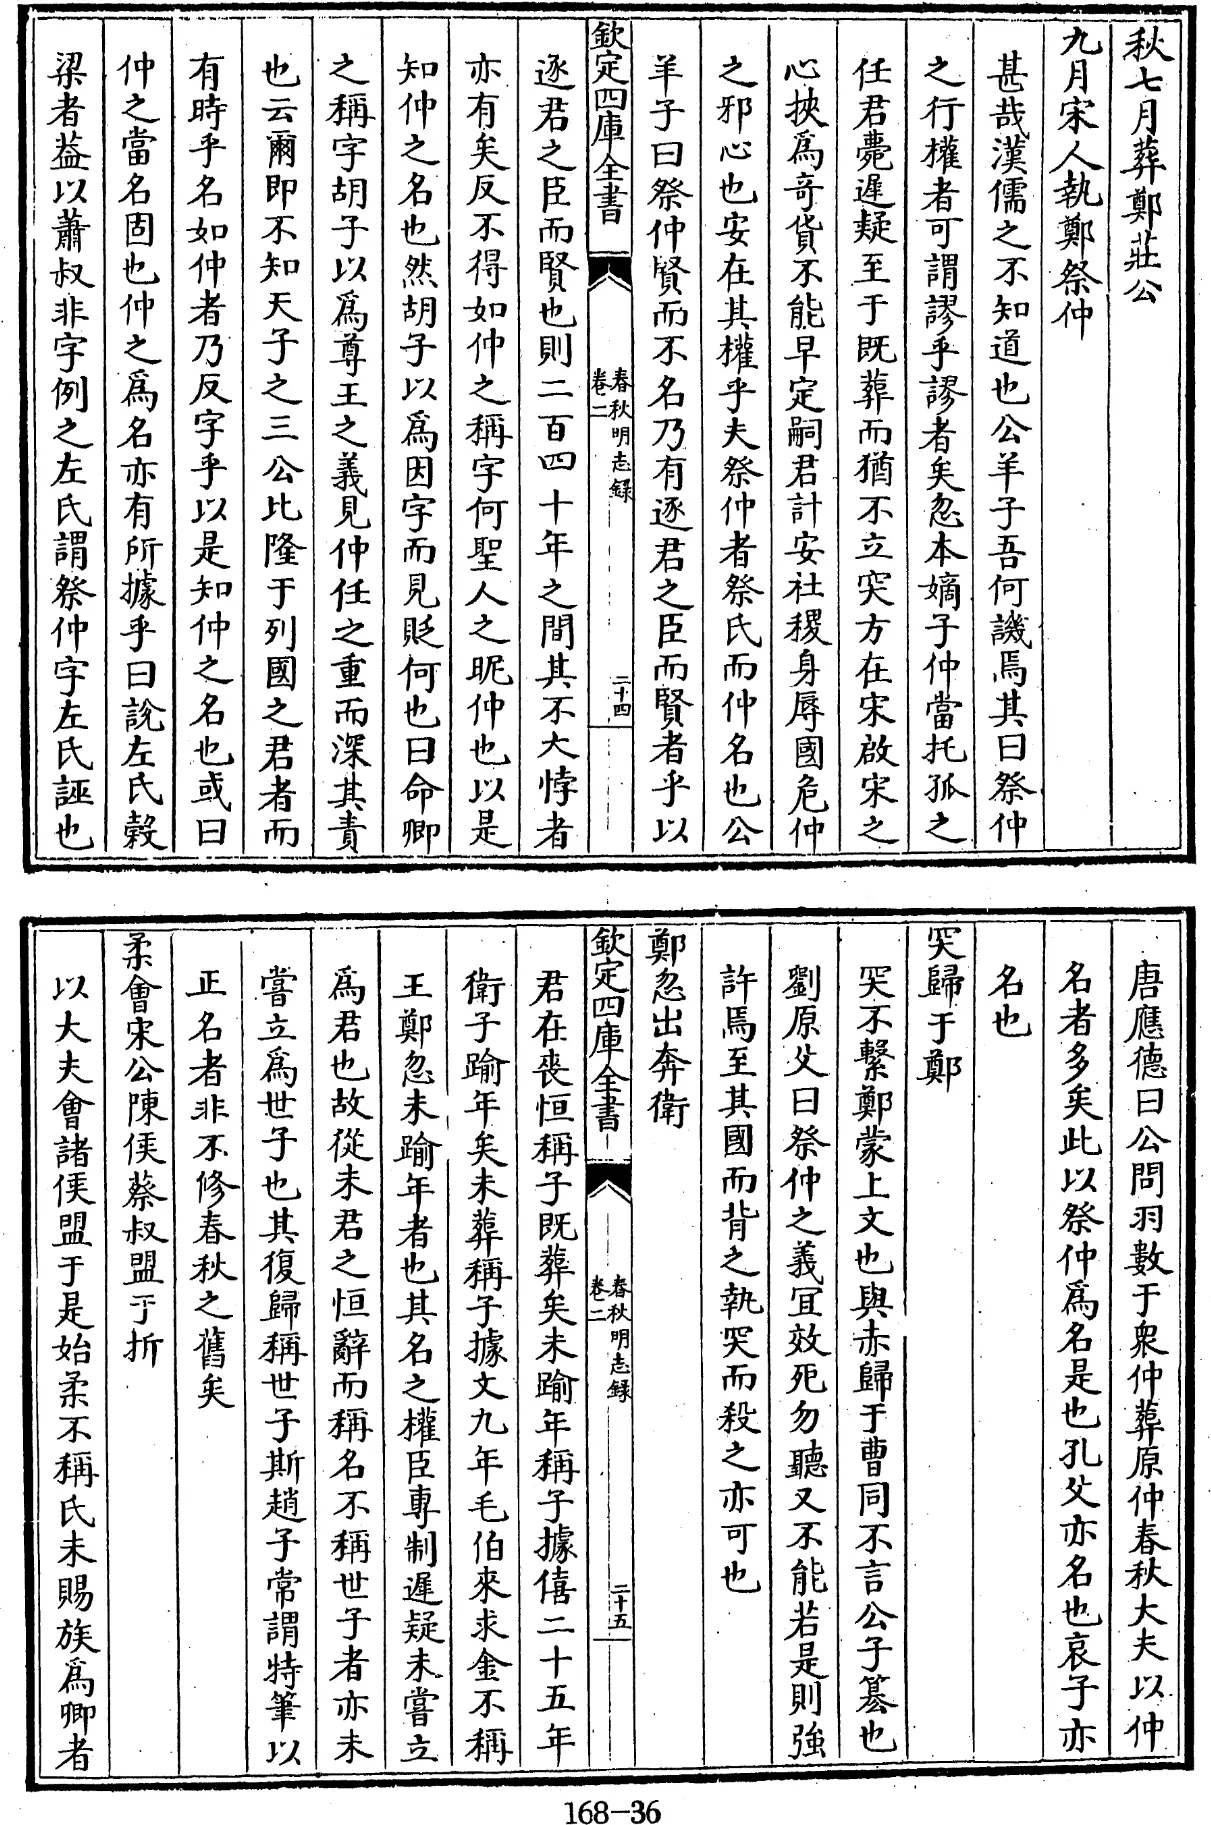 秋七月葬鄭莊公
九月宋人執鄭祭仲
甚哉漢儒之不知道也公羊子吾何譏焉其曰祭仲
之行權者可謂謬乎謬者矣忽本嫡子仲當托孤之
任君薨遲疑至于既葬而猶不立突方在宋啟宋之
心挾爲奇貨不能早定嗣君計安社稷身辱國危仲
之邪心也安在其權乎夫祭仲者祭氏而仲名也公
羊子曰祭仲賢而不名乃有逐君之臣而賢者乎以
欽定四庫全書
春秋明志錄
卷二
二十四
逐君之臣而賢也則二百四十年之間其不大悖者
亦有矣反不得如仲之稱字何聖人之昵仲也以是
知仲之名也然胡子以爲因字而見貶何也曰命卿
之稱字胡子以爲尊王之義見仲任之重而深其責
也云爾即不知天子之三公比隆于列國之君者而
有時乎名如仲者乃反字乎以是知仲之名也或曰
仲之當名固也仲之爲名亦有所據乎曰說左氏穀
梁者葢以蕭叔非字例之左氏謂祭仲字左氏誣也
唐應德曰公問羽數于衆仲葬原仲春秋大夫以仲
名者多矣此以祭仲爲名是也孔父亦名也哀子亦
名也
突歸于鄭
突不繫鄭蒙上文也與赤歸于曹同不言公子篡也
劉原父曰祭仲之義宜效死勿聽又不能若是則強
許焉至其國而背之執突而殺之亦可也
鄭忽出奔衛
欽定四庫全書
春秋明志錄
卷二
二十五
君在喪恒稱子既葬矣未踰年稱子據僖二十五年
衛子踰年矣未葬稱子據文九年毛伯來求金不稱
王鄭忽未踰年者也其名之權臣專制遲疑未嘗立
爲君也故從未君之恒辭而稱名不稱世子者亦未
嘗立爲世子也其復歸稱世子斯趙子常謂特筆以
正名者非不修春秋之舊矣
柔會宋公陳侯蔡叔盟于折
以大夫會諸侯盟于是始柔不稱氏未賜族爲卿者
168-36